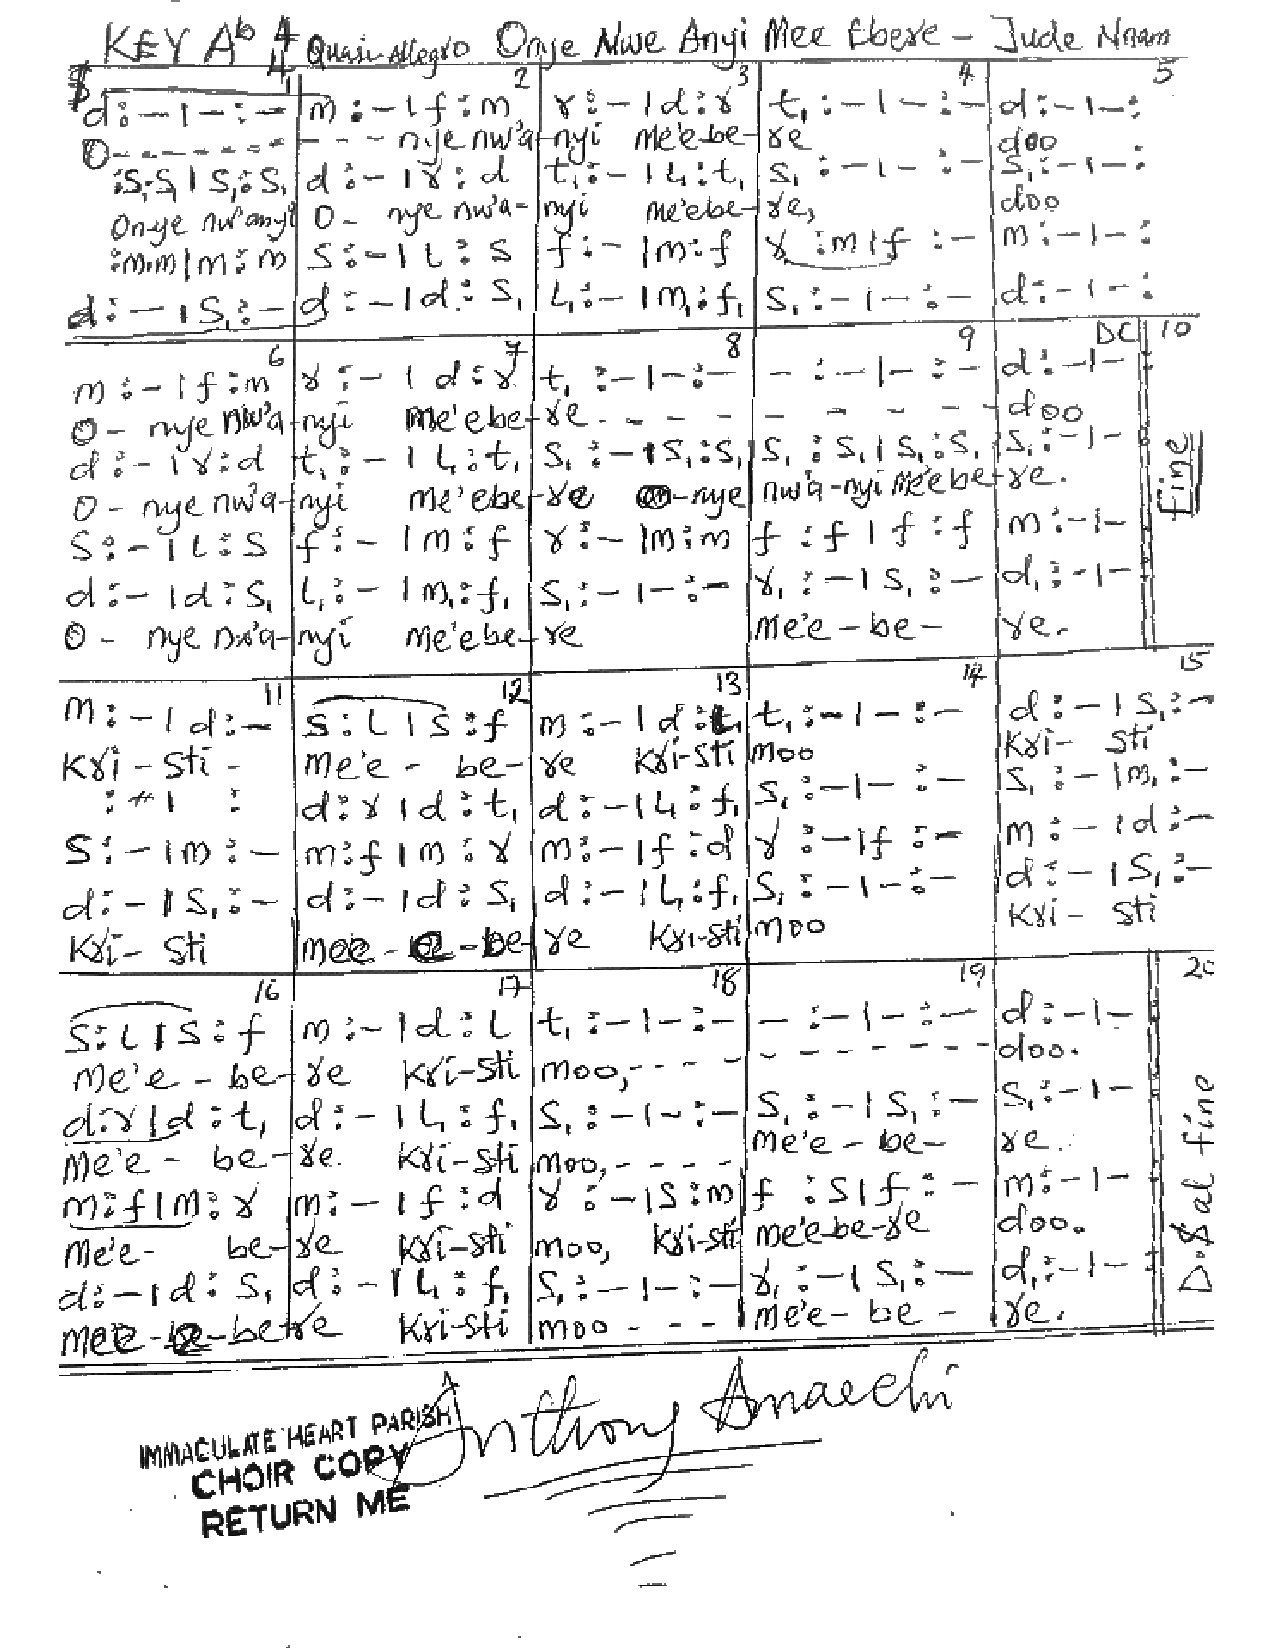 KEY Ab 4/4 Quasi-Allegro Onye Nwe Anyi Mee Ebere - Jude Nnam
1 2 3 4 5
d:-|-:- m:-|f:m r:-|d:r t,:-|-:- d:-|-:
O-------- ---- nye nw'a-nyi me'e-be-re doo
:s,.s,|s,:s, d:-|r:d t,:-|l,:t, s,:-|-:- s,:-|-:
On-ye nw'anyi O- nye nw'a-nyi me'ebe-re, doo
:m.m|m:m s:-|l:s f:-|m:f r:m|f:- m:-|-:
d:-|s,:- d:-|d:s, l,:-|m,:f, s,:-|-:- d:-|-:
6 7 8 9 DC 10
m:-|f:m r:-|d:r t,:-|-:- -:-|-:- d:-|-:
O- nye nw'a-nyi me'ebe-re---- ------ doo
d:-|r:d t,:-|l,:t, s,:-|s,:s, s,:s,|s,:s, s,:-|-:
O- nye nw'a-nyi me'ebe-re on-nye nw'a-nyi me'ebe-re.
s:-|l:s f:-|m:f r:-|m:m f:f|f:f m:-|-
d:-|d:s, l,:-|m,:f, s,:-|-:- r,:-|s,:- d,:-|-:
O- nye nw'a-nyi me'ebe-re me'e-be- re.
Fine
11 12 13 14 15
m:-|d:- s:l|s:f m:-|d:t, t,:-|-:- d:-|s,:-
Kri-sti- me'e- be-re Kri-sti moo Kri- sti
:#| : d:r|d:t, d:-|l,:f, s,:-|-:- s,:-|m,:-
s:-|m:- m:f|m:r m:-|f:d r:-|f:- m:-|d:-
d:-|s,:- d:-|d:s, d:-|l,:f, s,:-|-:- d:-|s,:-
Kri- sti mee-be-re Kri-sti moo Kri- sti
16 17 18 19 20
s:l|s:f m:-|d:l t,:-|-:- -:-|-:- d:-|-:
me'e-be-re Kri-sti moo,---- -------- doo.
d:r|d:t, d:-|l,:f, s,:-|-:- s,:-|s,:- s,:-|-
Me'e- be-re. Kri-sti moo,---- me'e-be- re.
m:f|m:r m:-|f:d r:-|s:m f:s|f:- m:-|-:
Me'e- be-re Kri-sti moo, Kri-sti me'e-be-re doo.
d:-|d:s, d:-|l,:f, s,:-|-:- r,:-|s,:- d,:-|-:
mee-be-re Kri-sti moo--- me'e-be- re.
D.$ al fine
Anthony Amaechi
IMMACULATE HEART PARISH
CHOIR COPY
RETURN ME